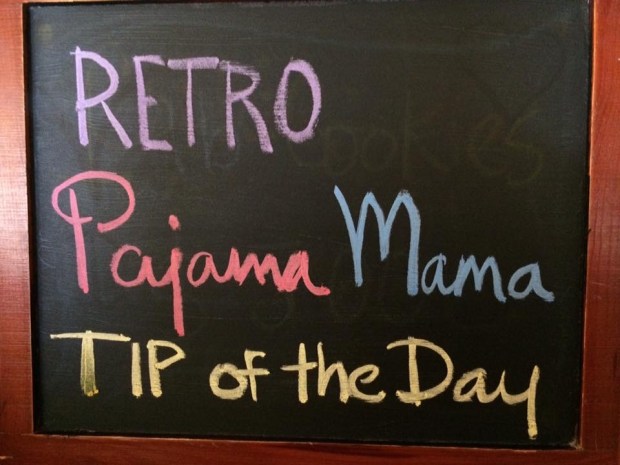 RETRO
Pajama Mama
TIP of the Day